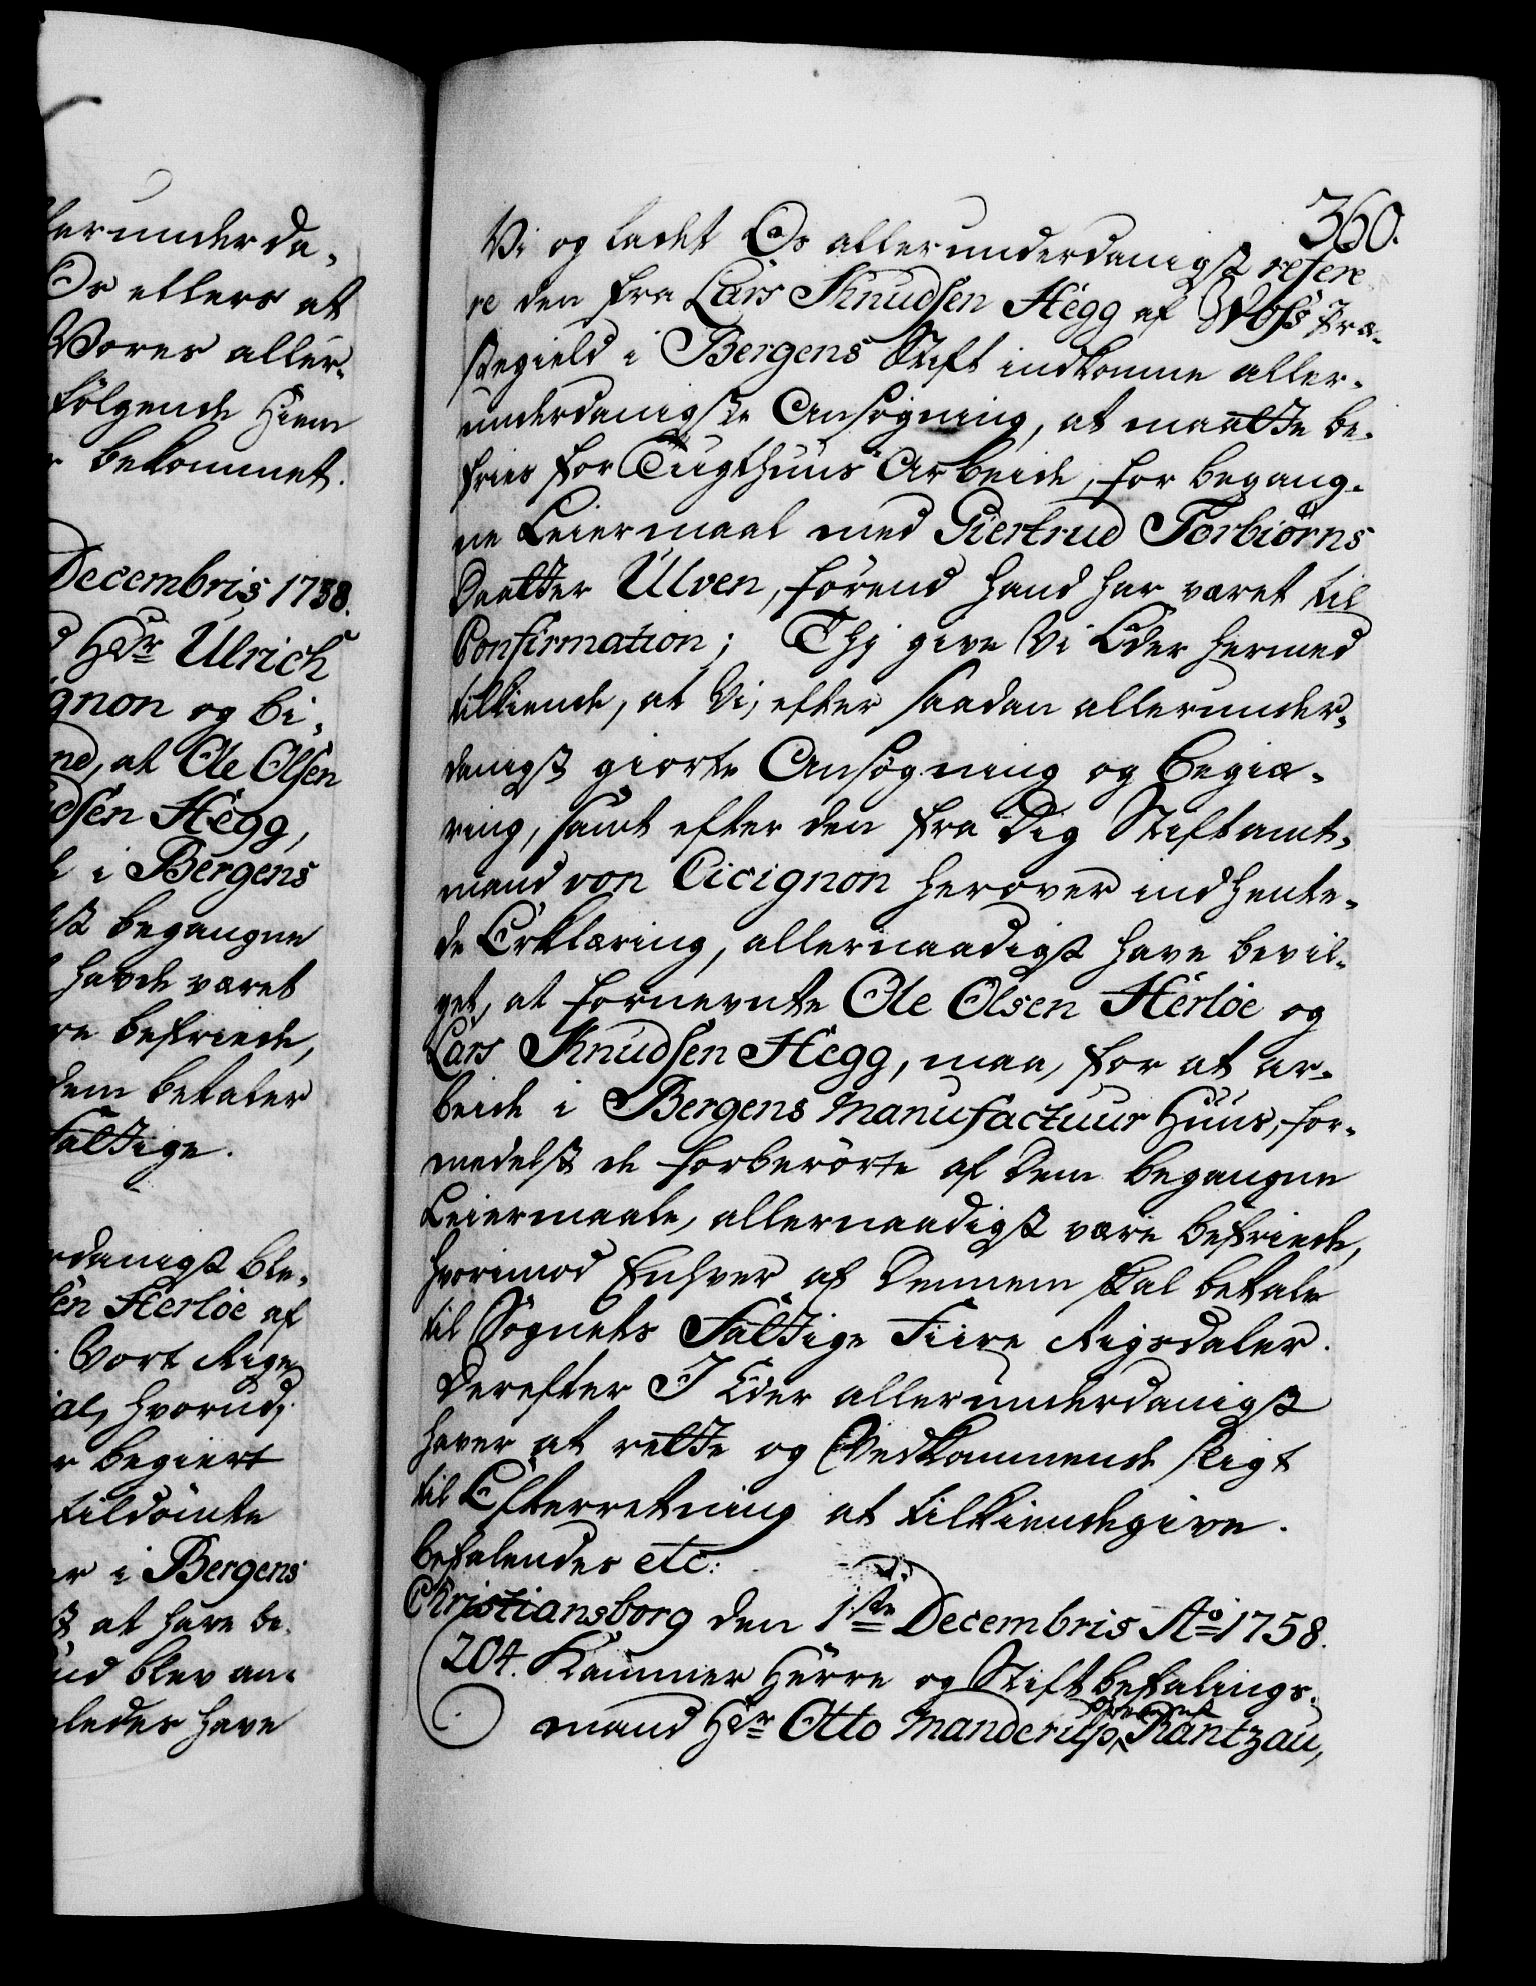 lerunderda-
Os ellers at
Vores aller-
følgende Hiem
bekommet.
Decembris 1758.
Hr Ulrich
gnon og bi-
nd, at Ole Olsen
udsen Hegg,
i Bergens
begangne
havde været
befriede,
dem betaler
Fattige.
rdanigst ble-
sen Herløe af
Vort Rige
hvorud-
begiert
tildömte
i Bergens
at have be-
blev an-
ledes have
360.
Vi og ladet Os allerunderdanigst refere
re den fra Lars Knudsen Hegg af Woss Præ-
stegield i Bergens Stift indkomne aller-
underdanigste Ansøgning, at maatte be-
fries for Tugthuus Arbeide, for begang-
ne Leiermaal med Giertrud Torbiørns
Daatter Ulven, førend hand har været til
Confirmation; Thj give Vi Eder hermed
tilkiende, at Vi, efter saadan allerunder-
danigst giorte Ansøgning og Begiæ-
ring, samt efter den fra Dig Stiftamt-
mand von Cicignon herover indhente-
de Erklæring, allernaadigst have bevil-
get, at fornevnte Ole Olsen Herløe og
Lars Knudsen Hegg, maa, for at ar-
beide i Bergens Manufactuur Huus, for-
medelst de forberørte af Dem begangne
Leiermaale, allernaadigst være befriede,
hvorimod Enhver af Dennem skal betale
til Sognets Fattige Fiire Rigsdaler.
Derefter I Eder allerunderdanigst
haver at rette og Vedkommende sligt
til Efterretning at tilkiendegive.
Befalendes etc:
Christiansborg den 1ste Decembris Ao 1758.
204. Kammer Herre og Stiftbefalings-
mand Hr Otto Manderup Rantzau,